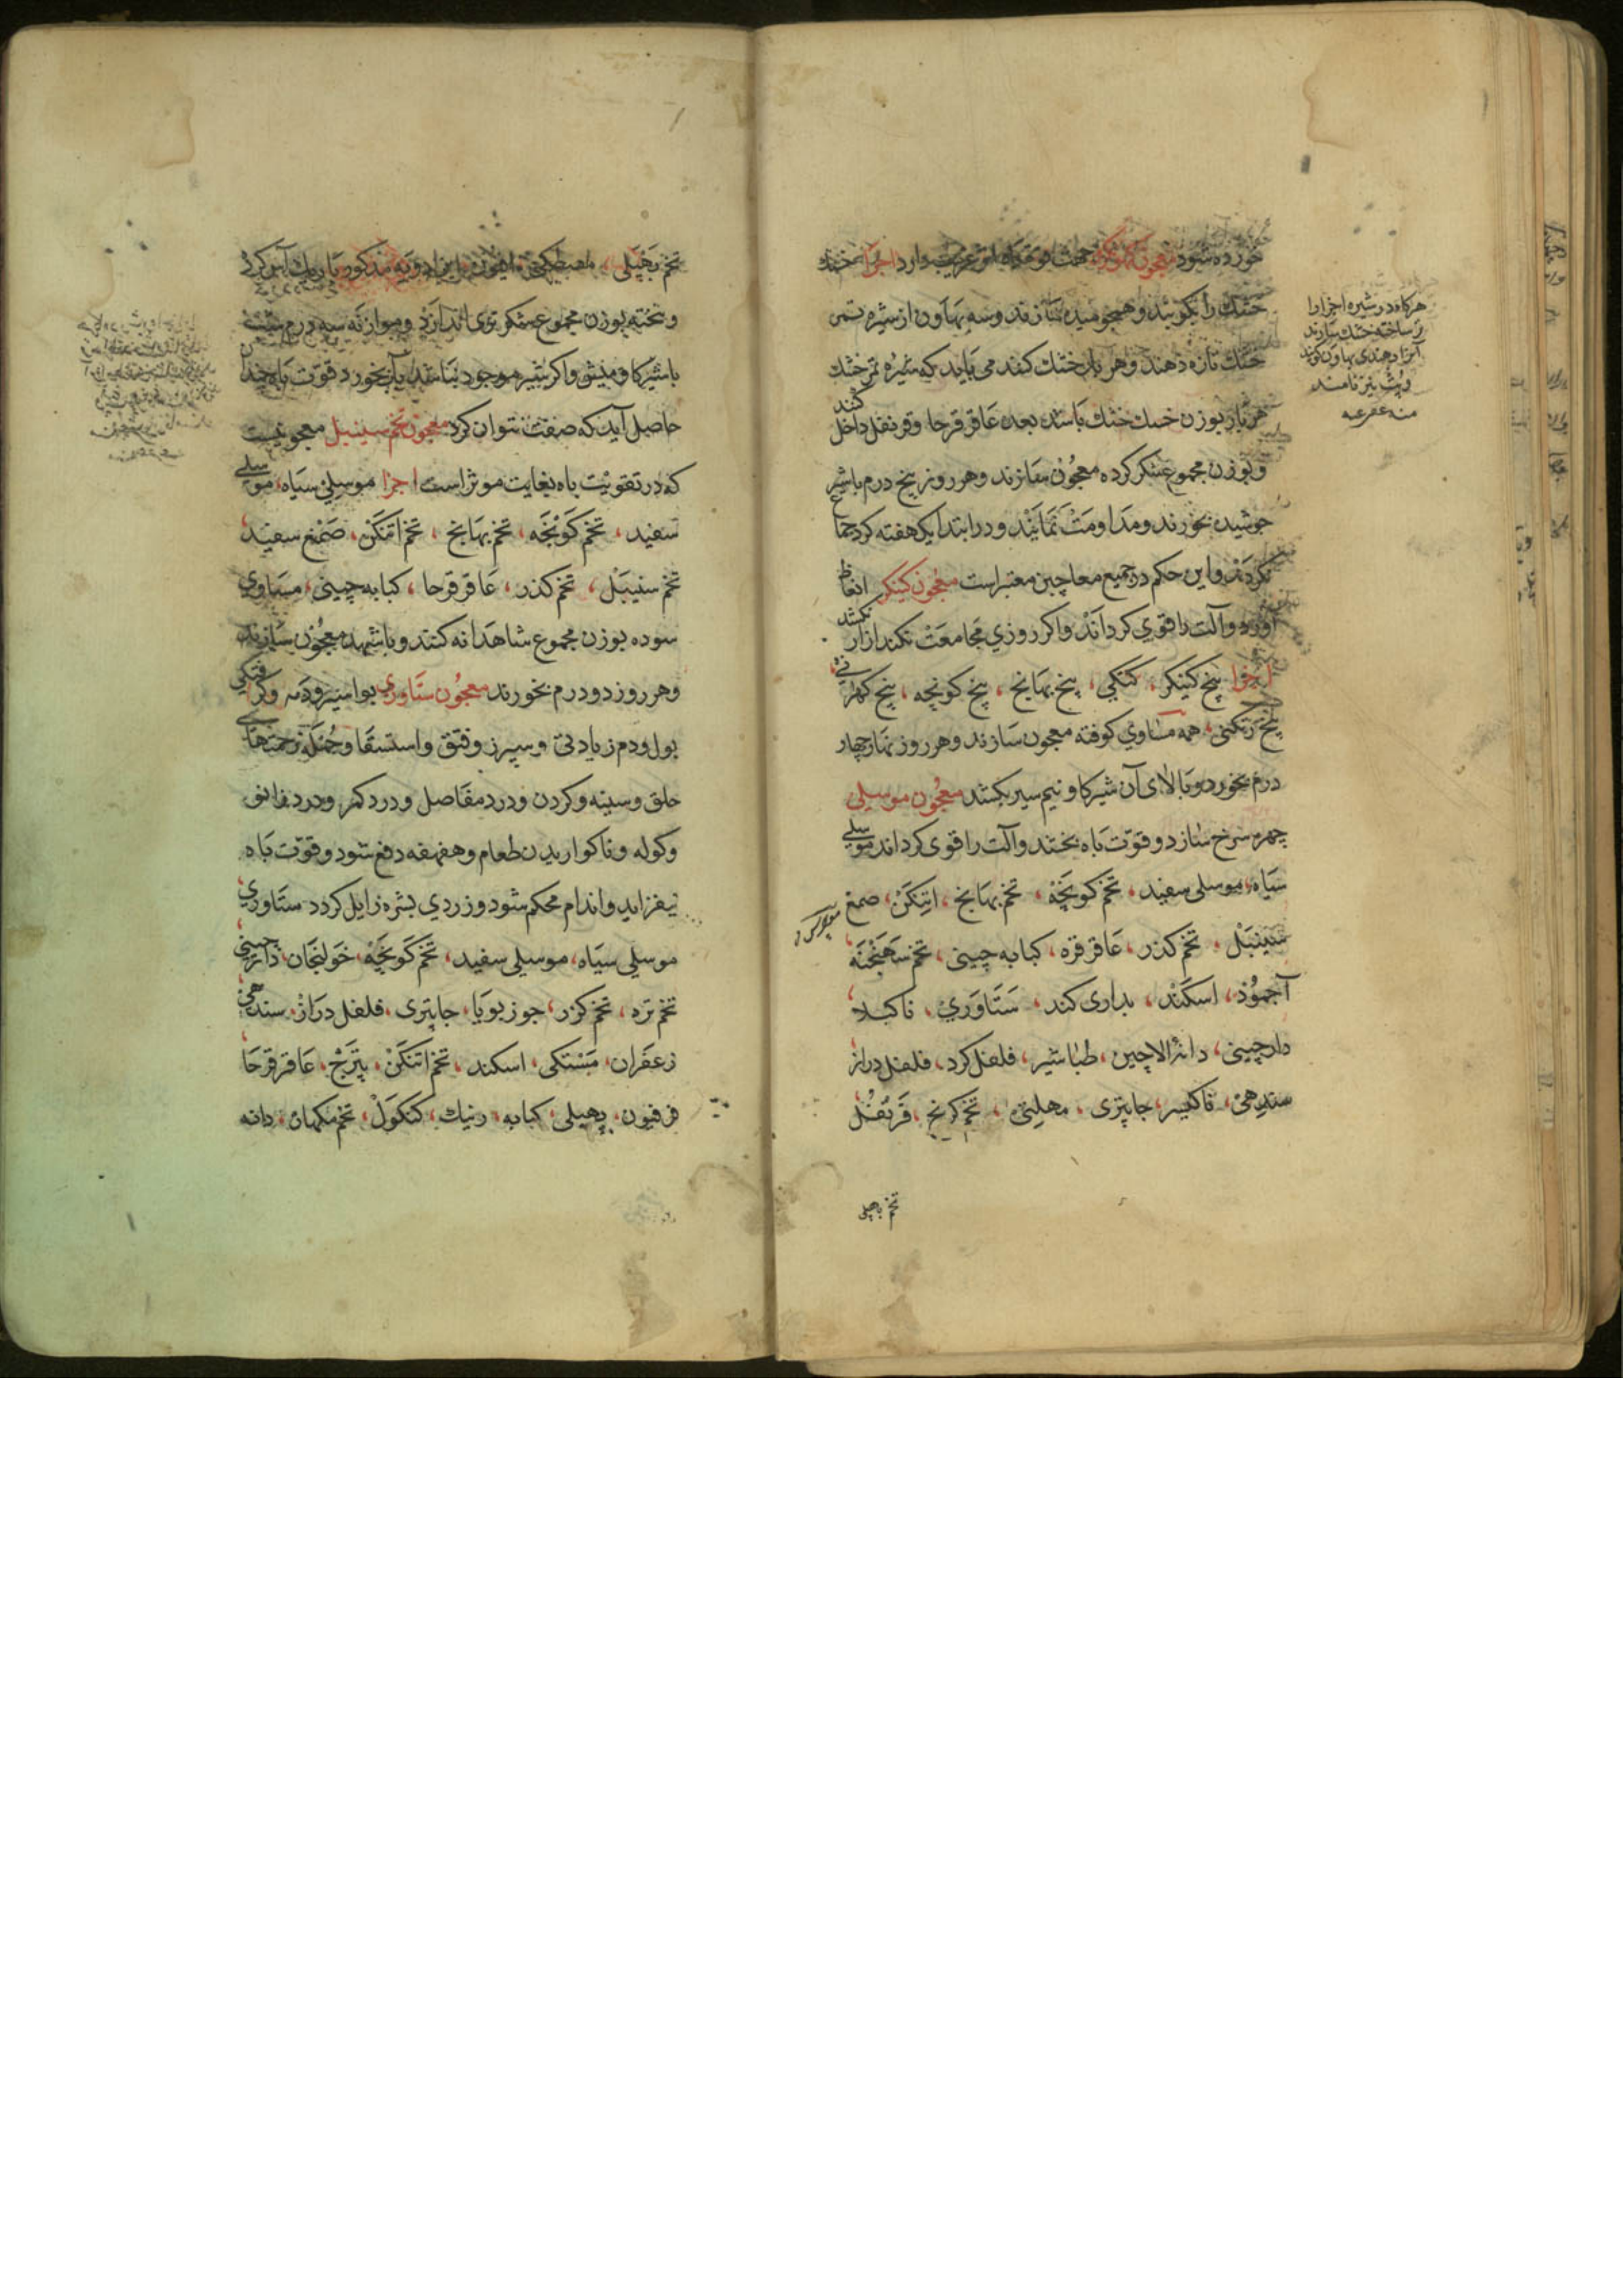 خورده شود معجون کوکرو جهت قوت باه اثر غریب دارد اجزا خسک
خشک را بکویند و همچو میده سازند و سه بهاون از شیره تمر
خسک تازه دهند و هر بار خشک کنند می باید که شیره تر خشک
هر بار بوزن خسک خشک باشد بعده عاقرقرحا و قرنفل داخل کنند
و بوزن مجموع شکر کرده معجون سازند و هر روز پنج درم با شیر
جوشیده بخورند و مداومت نمایند و در ابتدا یک هفته کرد جماع
نکردند و این حکم در جمیع معاجین معتبر است معجون کینکر انعاظ
آورد و آلت را قوی کرداند و اکر روزی مجامعت نکند ازار نکشد
اجزا بیخ کینکر، کنکی، بیخ بهانج، بیخ کونچه، بیخ
بیخ رتکنی، همه مساوی کوفته معجون سازند و هر روز نهار چهار
درم بخورد و بالای آن شیر کاو نیم سیر بکشد معجون موسیلی
چهره سرخ سازد و قوت باه بخشد و آلت را قوی کرداند موسلی
سیاه، موسلی سفید، تخم کونچه، تخم بهانج، اتنکن، صمغ
سنینبل، تخم کذر، عاقرقره، کبابه چینی، تخم ساهنجنه
آجموذ، اسکند، بداری کند، ستاوری، ناکبلا
دارچینی، دانه الاچین، طباشیر، فلفل کرد، فلفل دراز
سندهی، ناکیسر، جاپتری، مهلیتی، تخم کرنج، قرنفل
تخم بهپلی
هرکاه در شیره اجزا را
تر ساخته خشک سازند
آنرا دهندی بهاون کویند
و پت نیز نامند
منه عفی عنه
تخم بهپلی، مصطکی، افیون، این ادویه مذکور باریک آس کرده
و پخته بوزن مجموع شکر تری اندازد و موازنه سه درم شیت
با شیر کاومیش و اکر شیر موجود نباشد بآب بخورد قوت باه چندان
حاصل آید که صفت نتوان کرد معجون تخم سینبل معجونیست
که در تقویت باه بغایت موثر است اجزا موسیلی سیاه، موسلی
سفید، تخم کونچه، تخم بهانج، تخم اتنکن، صمغ سفید
تخم سنیبل، تخم کذر، عاقرقرحا، کبابه چینی، مساوی
سوده بوزن مجموع شاهدانه کنند و با شهد معجون سازند
و هر روز دو درم بخورند معجون ستاوری بواسیر و دمه و کرفتکی
بول و دم زیادتی و سپرز و فتق و استسقا و جمله زحمتهای
حلق و سینه و کردن و درد مفاصل و درد کمر و درد زانو
و کوله و ناکواریدن طعام و هفهفه دفع شود و قوت باه
بیفزاید و اندام محکم شود و زردی بشره زایل کردد ستاوری
موسلی سیاه، موسیلی سفید، تخم کونچه، خولنجان، دارچینی
تخم ترد، تخم کزر، جوزبویا، جاپتری، فلفل دراز، سندهی
زعفران، مستکی، اسکند، تخم اتنکن، پترج، عاقرقرحا
فرفیون، پهپلی، کبابه، رنیک، کنکول، تخم مکهانه، دانه